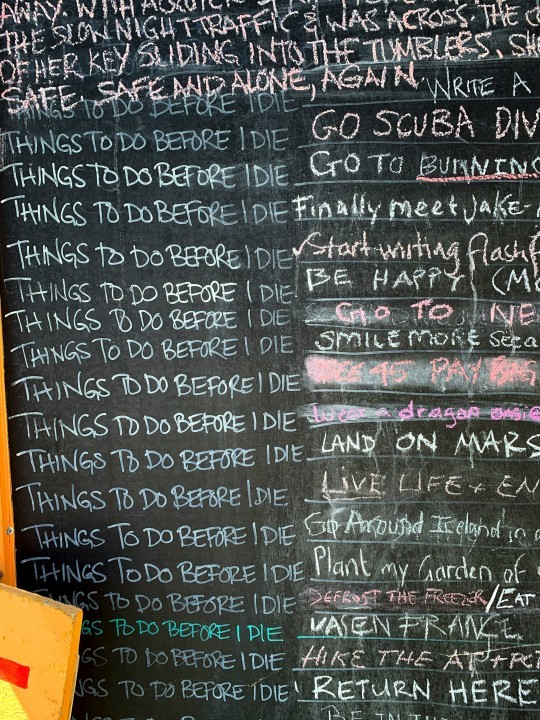 AWAY. WITH A
THE SLOW NIGHT TRAFFIC & WAS ACROSS THE
OF HER KEY SLIDING INTO THE TUMBLERS, SHE
SAFE, SAFE AND ALONE, AGAIN. WRITE A
THINGS TO DO BEFORE I DIE
THINGS TO DO BEFORE I DIE GO SCUBA DIV
THINGS TO DO BEFORE I DIE GO TO BURNING
THINGS TO DO BEFORE I DIE Finally meet Jake
THINGS TO DO BEFORE I DIE ✓Start writing flash f
BE HAPPY (MO
THINGS TO DO BEFORE I DIE GO TO NE
THINGS TO DO BEFORE I DIE SMILE MORE
THINGS TO DO BEFORE I DIE
THINGS TO DO BEFORE I DIE 45 PAY
THINGS TO DO BEFORE I DIE a dragon
THINGS TO DO BEFORE I DIE LAND ON MARS
THINGS TO DO BEFORE I DIE LIVE LIFE + EN
THINGS TO DO BEFORE I DIE Go Around Iceland in a
THINGS TO DO BEFORE I DIE Plant my Garden of
THINGS TO DO BEFORE I DIE DEFROST THE FREEZER/EAT
GS TO DO BEFORE I DIE EN FRANCE
GS TO DO BEFORE I DIE HIKE THE AT + PC
GS TO DO BEFORE I DIE! RETURN HERE